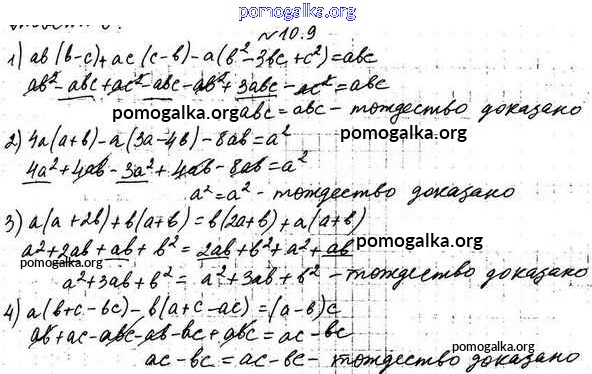 pomogalka.org
№10.9
1) ab(b-c)+ac(c-b)-a(b²-3bc+c²)=abc
ab²-abc+ac²-abc-ab²+3abc-ac²=abc
pomogalka.org abc=abc - тождество доказано
2) 4a(a+b)-a(3a-4b)-8ab=a² pomogalka.org
4a²+4ab-3a²+4ab-8ab=a²
a²=a² - тождество доказано
3) a(a+2b)+b(a+b)=b(2a+b)+a(a+b)
a²+2ab+ab+b²=2ab+b²+a²+ab pomogalka.org
pomogalka.org
a²+3ab+b²=a²+3ab+b² - тождество доказано
4) a(b+c-bc)-b(a+c-ac)=(a-b)c
ab+ac-abc-ab-bc+abc=ac-bc
ac-bc=ac-bc - тождество доказано
pomogalka.org pomogalka.org